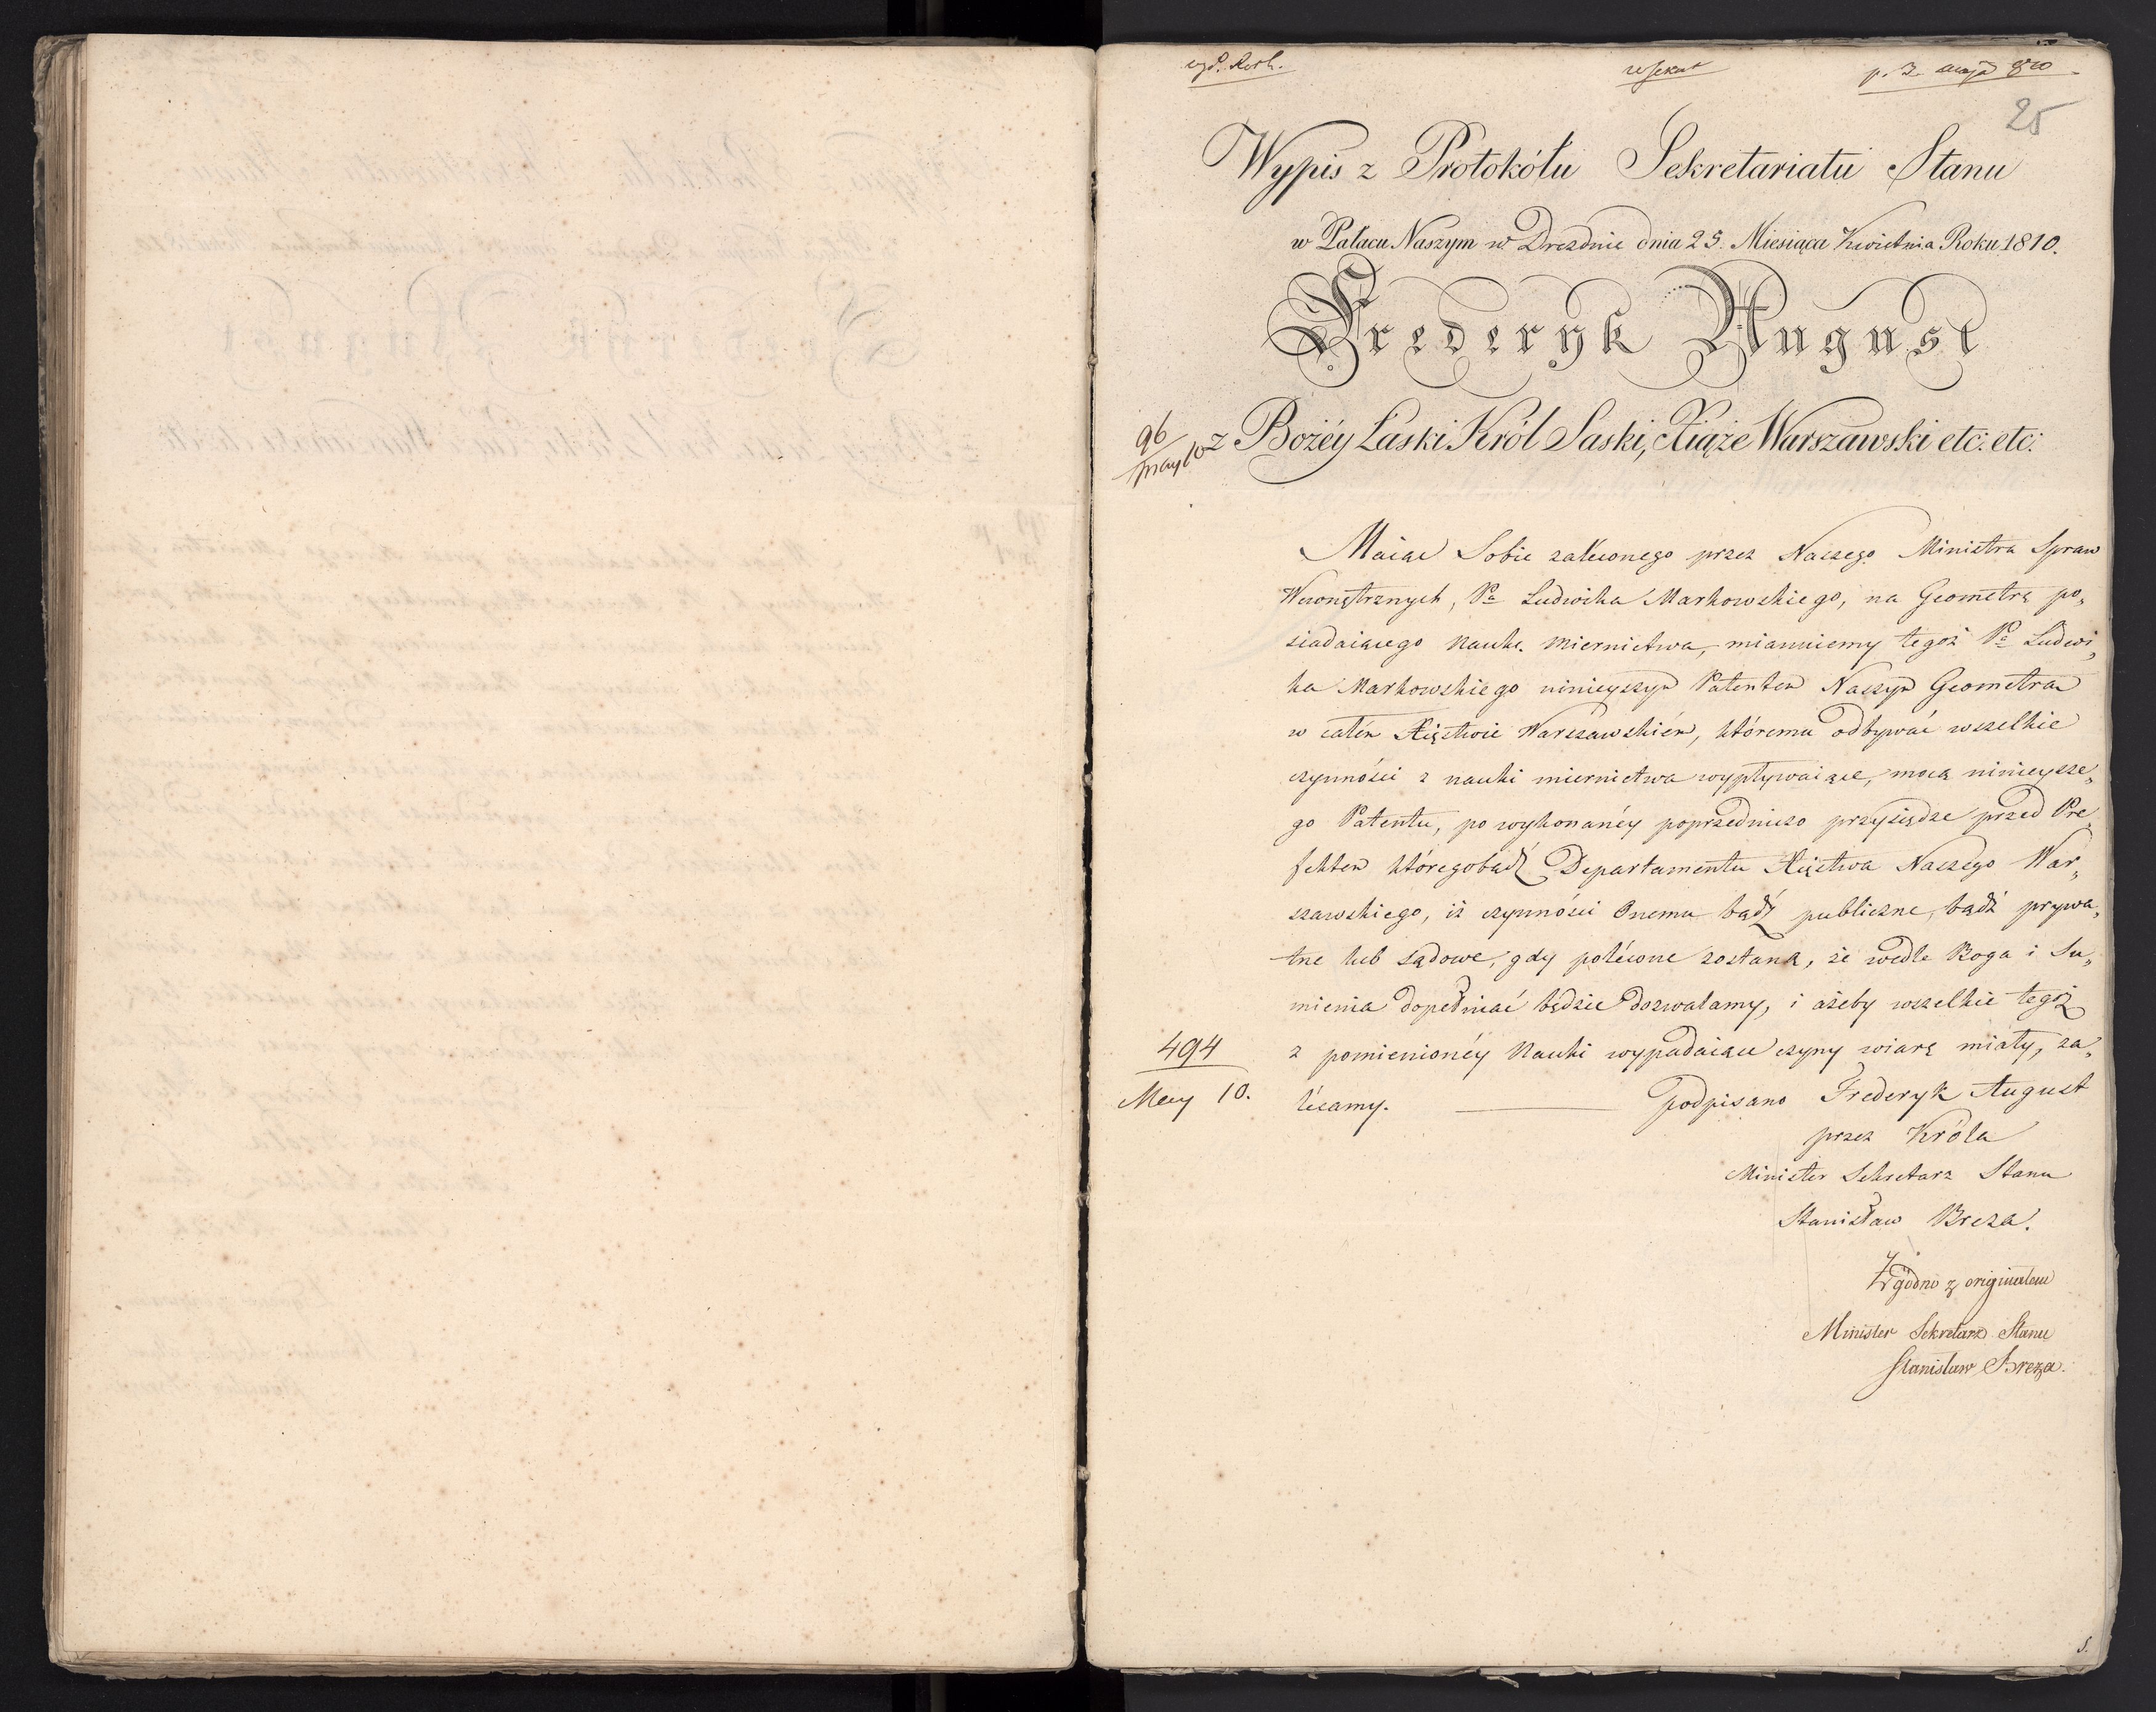 25
Wypis z Protokółu Sekretariatu Stanu
w Pałacu Naszym w Dreznie dnia 25. Miesiąca Kwietnia Roku 1810.
Frederyk August
96
may 10
z Bożéy Łaski Król Saski, Xiąże Warszawski etc: etc:
Maiąc Sobie zaleconego przez Naszego Ministra Spraw
Wewnętrznych, Pa Ludwika Markowskiego, na Geometrę po„
siadaiącego Naukę Miernictwa, mianuiemy tegoż Pa Ludwi„
ka Markowskiego ninieyszym Patentem Naszym Geometrą
w całém Xięstwie Warszawskiém, któremu odbywać wszelkie
czynności z nauki miernictwa wypływaiące, mocą ninieysze„
go Patentu, po wykonanéy poprzedniczo przysiędze przed Pre„
fektem któregobądź Departamentu Xięstwa Naszego War„
szawskiego, iż czynności Onemu bądź publiczne, bądź prywa„
tne lub sądowe, gdy polécone zostaną, że wedle Boga i Su„
mienia dopełniać będzie dozwalamy, i ażeby wszelkie tegoż
z pomienionéy Nauki wypadaiące czyny wiarę miały, za„
494
May 10.
lécamy. podpisano Frederyk August
przez Króla
Minister Sekretarz Stanu
Stanisław Breza.
Zgodno z originałem
Minister Sekretarz Stanu
Stanisław Breza.